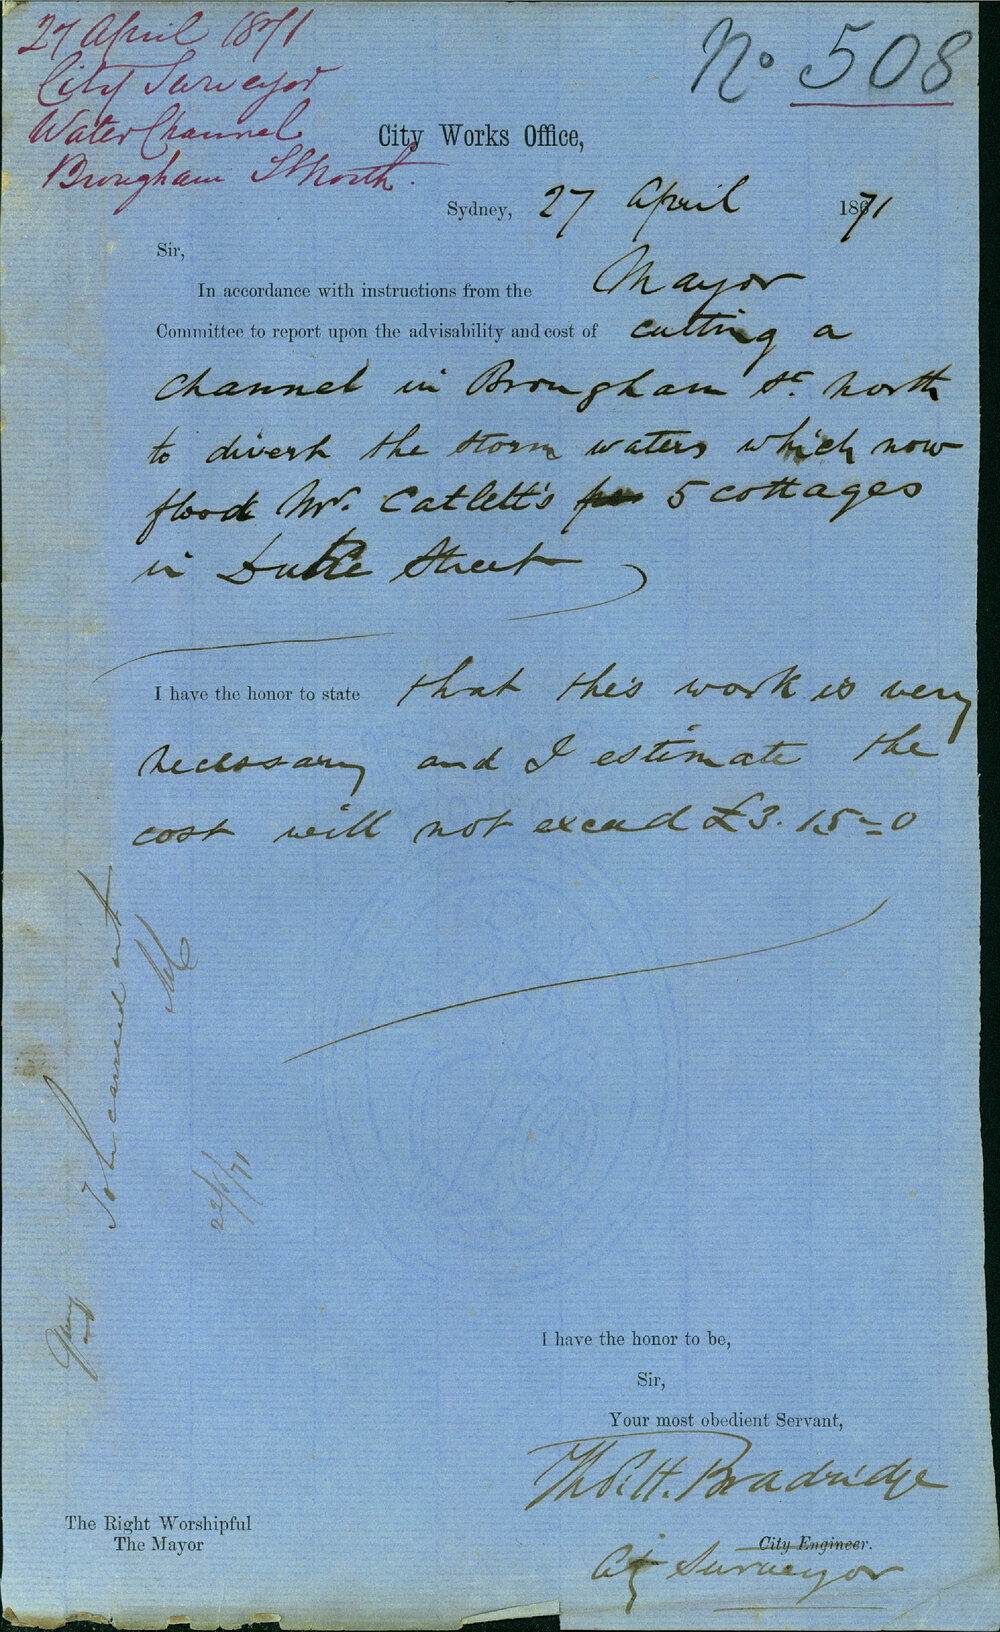 27 April 1871
City Surveyor
Water Channel
Brougham St North.
No 508
City Works Office,
Sydney, 27 April 1871
Sir,
In accordance with instructions from the Mayor
Committee to report upon the advisability and cost of cutting a
channel in Brougham St. North
to divert the storm waters which now
flood Mr. Catlett's 5 cottages
in Duke Street
I have the honor to state that this work is very
necessary and I estimate the
cost will not exceed £3.15=0
To be carried out
22/6/71
I have the honor to be,
Sir,
Your most obedient Servant,
Thos. H. Bradridge
City Engineer.
City Surveyor
The Right Worshipful
The Mayor